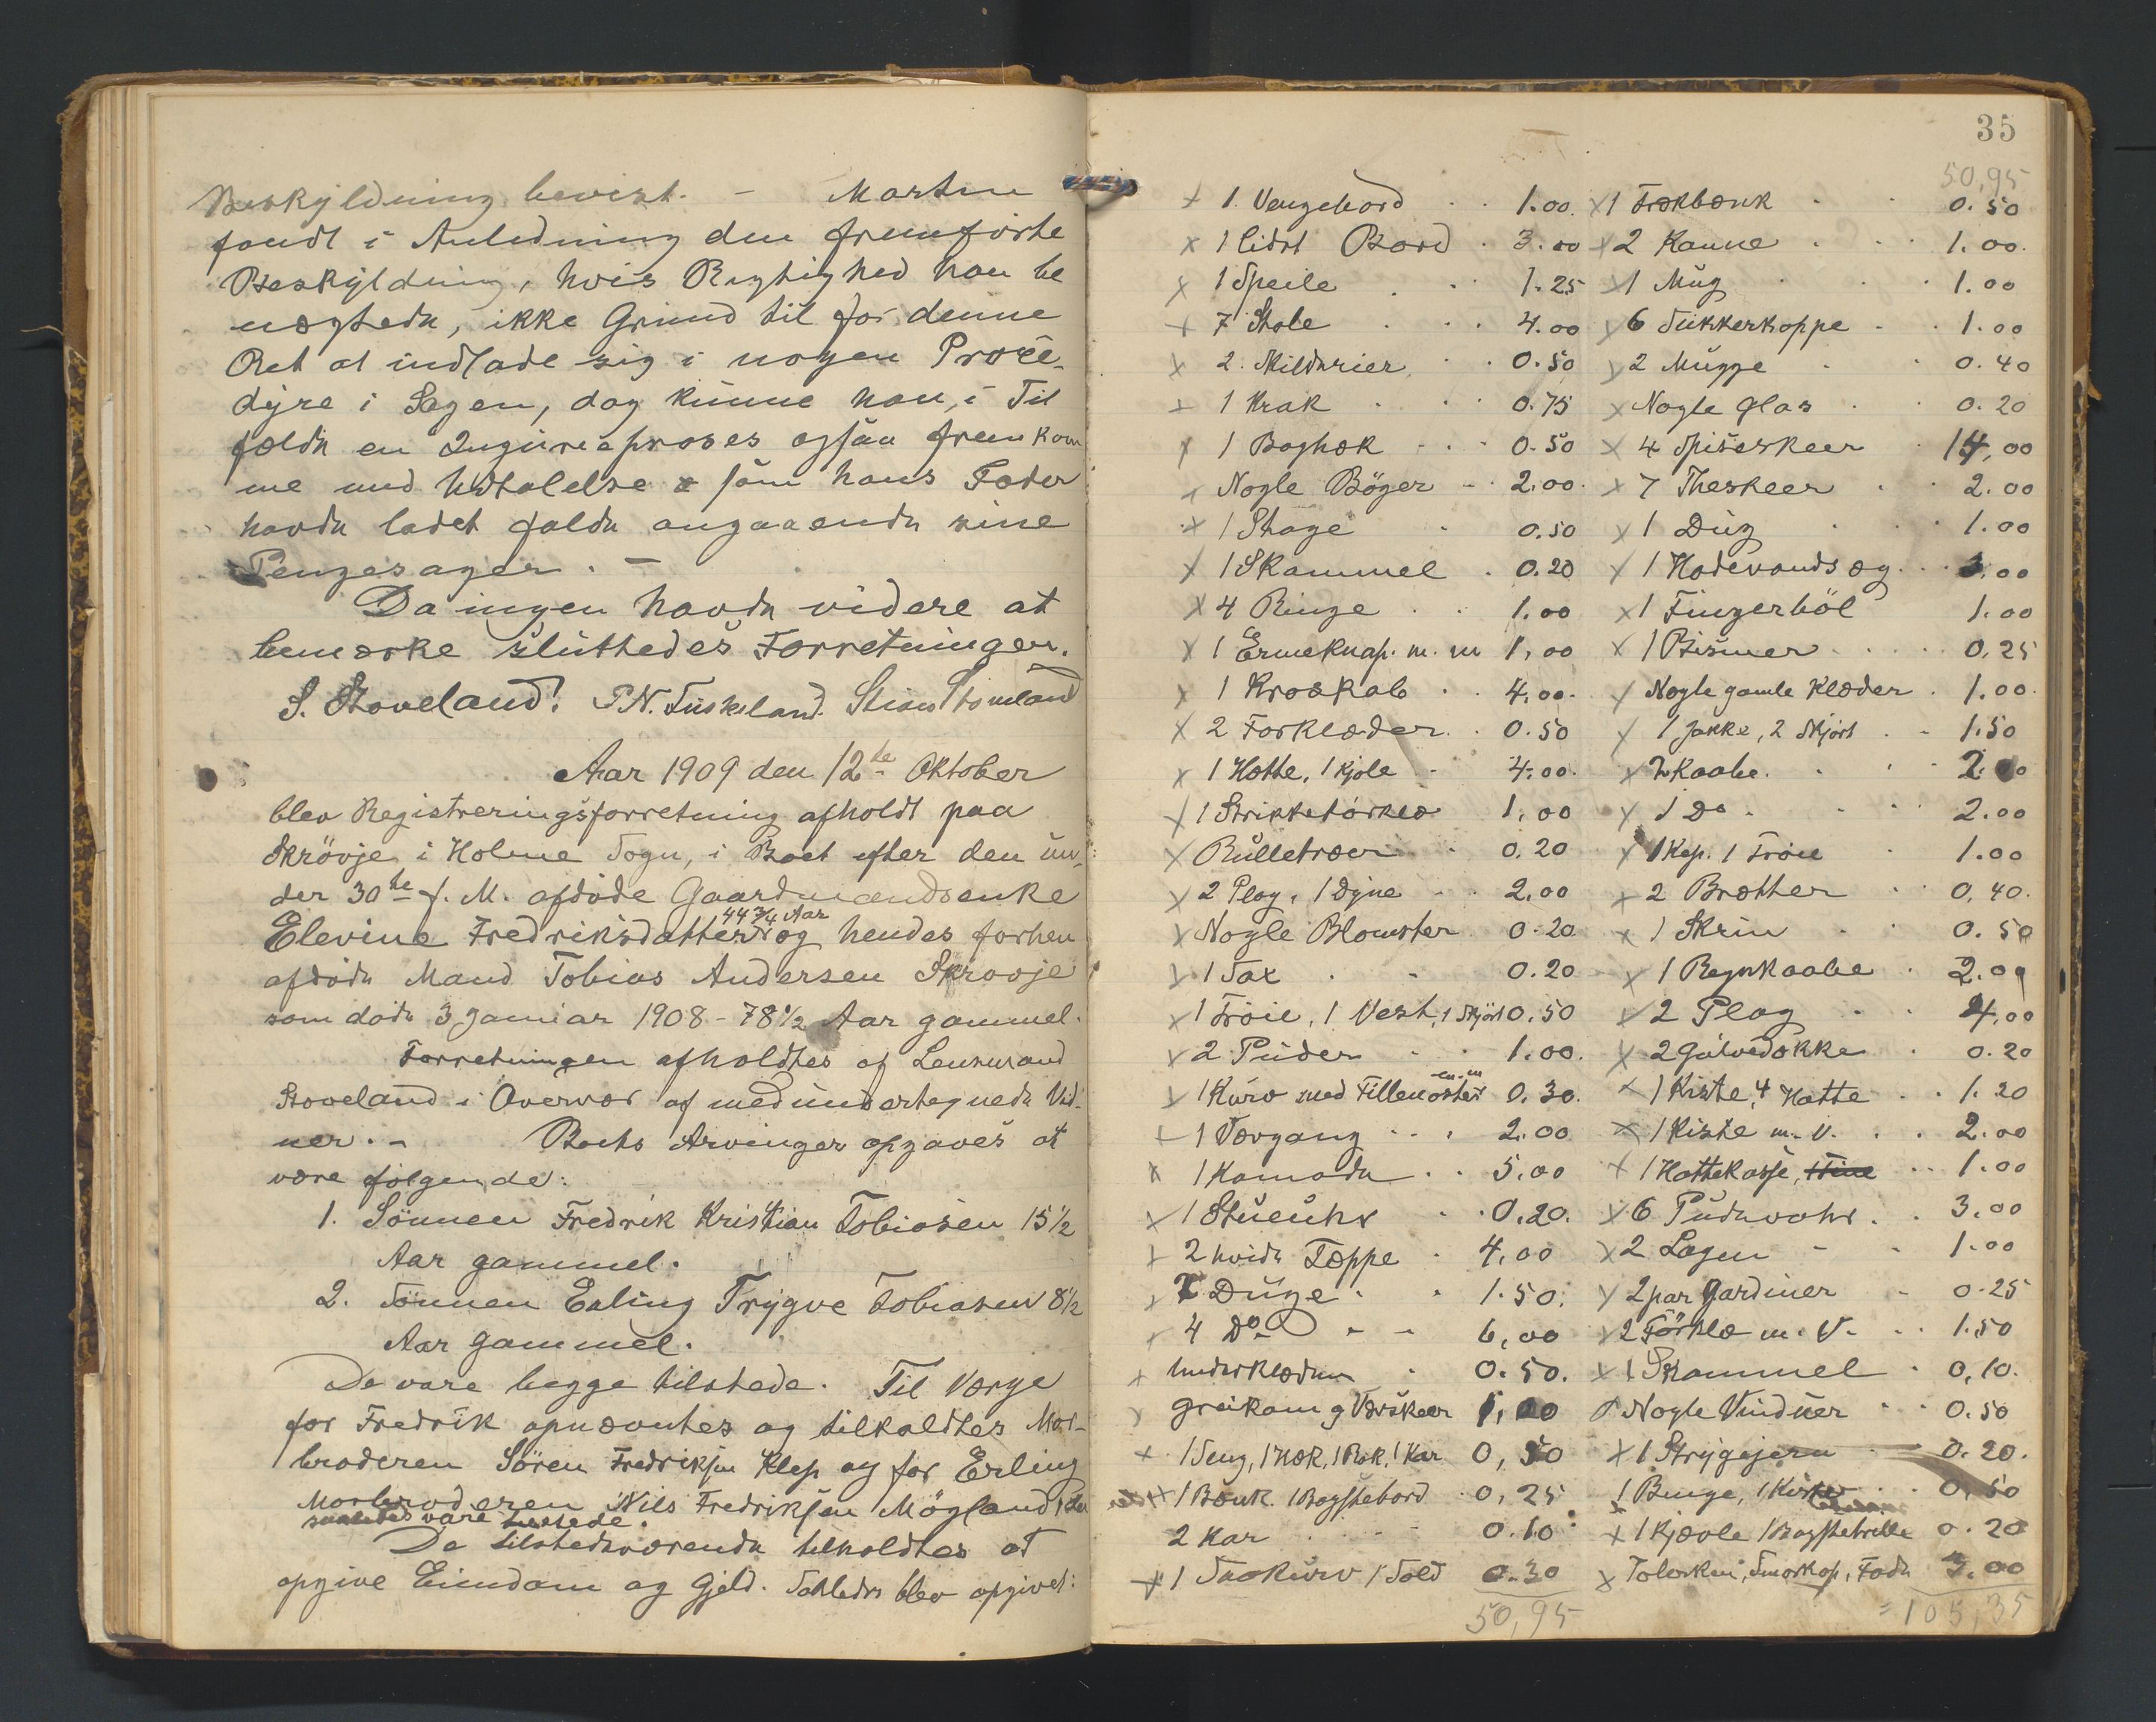 Beskyldning bevist. - Martin
fandt i Anledning den fremførte
Beskyldning, hvis Rigtighed han be
nægtede, ikke Grund til for denne
Ret at indlade sig i nogen Proce-
dyre i Sagen, dog kunne han, i Til
fælde en Injurieproses ogsaa fremkom
me med Udtalelse som hans Fader
havde ladet falde angaaende sine
Pengesager. -
Da ingen havde videre at
bemærke sluttedes Forretningen.
S. Stoveland. P.N. Tuskeland.
Aar 1909 den 12te Oktober
blev Registreringsforretning afholdt paa
Skrövje i Holme Sogn, i Boet efter den un-
der 30te f. M. afdöde Gaardmandsenke
Elevine Fredriksdatter 44 3/4 Aar og hendes forhen
afdöde Mand Tobias Andersen Skrövje
som döde 3 Januar 1908 - 78 1/2 Aar gammel.
Forretningen afholdtes af Lensmand
Stoveland i Overvær af medundertegnede Vid-
ner. - Boets Arvinger opgaves at
være følgende:
1. Sönnen Fredrik Kristian Tobiasen 15 1/2
Aar gammel.
2. Sönnen Erling Trygve Tobiasen 8 1/2
Aar gammel.
De vare begge tilstede. Til Værge
for Fredrik opnævntes og tilkaldtes Mor-
broderen Sören Fredriksen Klep og for Erling
Morbroderen Nils Fredriksen Mögland, der
vare tilstede.
De tilstedeværende tilholdtes at
opgive Eiendom og Gjeld. Saaledes blev opgivet:
35
50,95
x 1 Vengebord 1.00
x 1 lidet Bord 3.00
x 1 Speile 1.25
x 7 Stole 4.00
x 2 0.50
x 1 Krak 0.75
x 1 Boghæk 0.50
x Nogle Böger 2.00
x 1 Stage 0.50
x 1 Skammel 0.20
x 4 Ringe 1.00
x 1 Ermeknap. m. m 1,00
x 1 Kroskab 4,00
x 2 Forklæder 0.50
x 1 Hatte, 1 Kjole 4.00
x 1 Strikketörklæ 1,00
x Rulletræer 0.20
x 2 Plag, 1 Dyne 2,00
x Nogle Blomster 0.20
x 1 Sax 0.20
x 1 Tröie, 1 Vest, 1 Skjört 0.50
x 2 Puder 1.00
x 1 Kurv med Filler m.m 0.30
x 1 Vævgang 2.00
x 1 Komode 5.00
x 1 Stueuhr 0.20
x 2 hvide Tæppe 4,00
x 2 Duge 1.50
x 4 Do 6,00
x Underklæder 0.50
x Greikam g Vævskeer 1,00
x 1 Seng, 1 Hæk, 1 Rok, 1 Kar 0,50
x 1 Bænk. 1 Bagstebord 0,25
2 Kar 0.10
x 1 Saakurv 1 Sold 0.30
50,95
x 1 Trækbænk 0.50
x 2 Kanne 1.00
x 1 Mug 1.00
x 6 Sukkerkoppe 1.00
x 2 Mugge 0.40
x Nogle Glas 0.20
x 4 Spiseskeer 14,00
x 7 Theskeer 2.00
x 1 Dug 1.00
x 1 Hodevandsæg 3.00
x 1 Fingerböl 1.00
x 1 Bismer 0.25
x Nogle gamle Klæder 1.00
x 1 Jakke, 2 Skjört 1.50
x 2 Kaabe 2.00
x 1 Do 2.00
x 1 Kep. 1 Tröie 1.00
x 2 Brætter 0,40
x 1 Skrin 0.50
x 1 Regnkaabe 2.00
x 2 Plag 4,00
x 2 Gulvedække 0.20
x 1 Kiste, 4 Hatte 1.20
x 1 Kiste m. V. 2.00
x 1 Hattekasse, 1 Tine 1.00
x 6 Pudevahr 3.00
x 2 Lagen 1.00
x 2 par Gardiner 0.25
x 2 Törklæ m. V. 1.50
x 1 Skammel 0,10
Nogle Vinduer 0.50
x 1 Strygejern 0.20
x 1 Binge, 1 Kiste 0,50
x 1 Kjævle 1 Bagstetrille 0.20
x Talerkeni, Smörkop, Fade 3.00
= 105,35